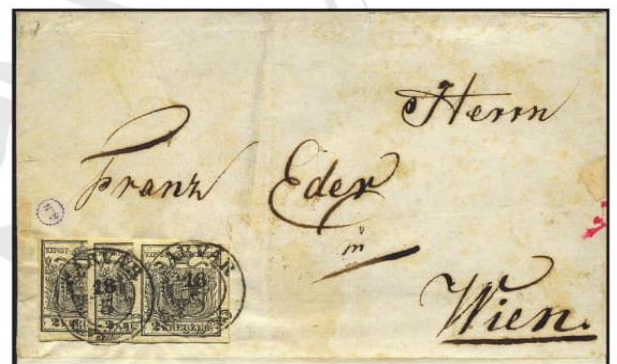 Herrn
Franz Eder
in
Wien.
16 16
2 KREUZER